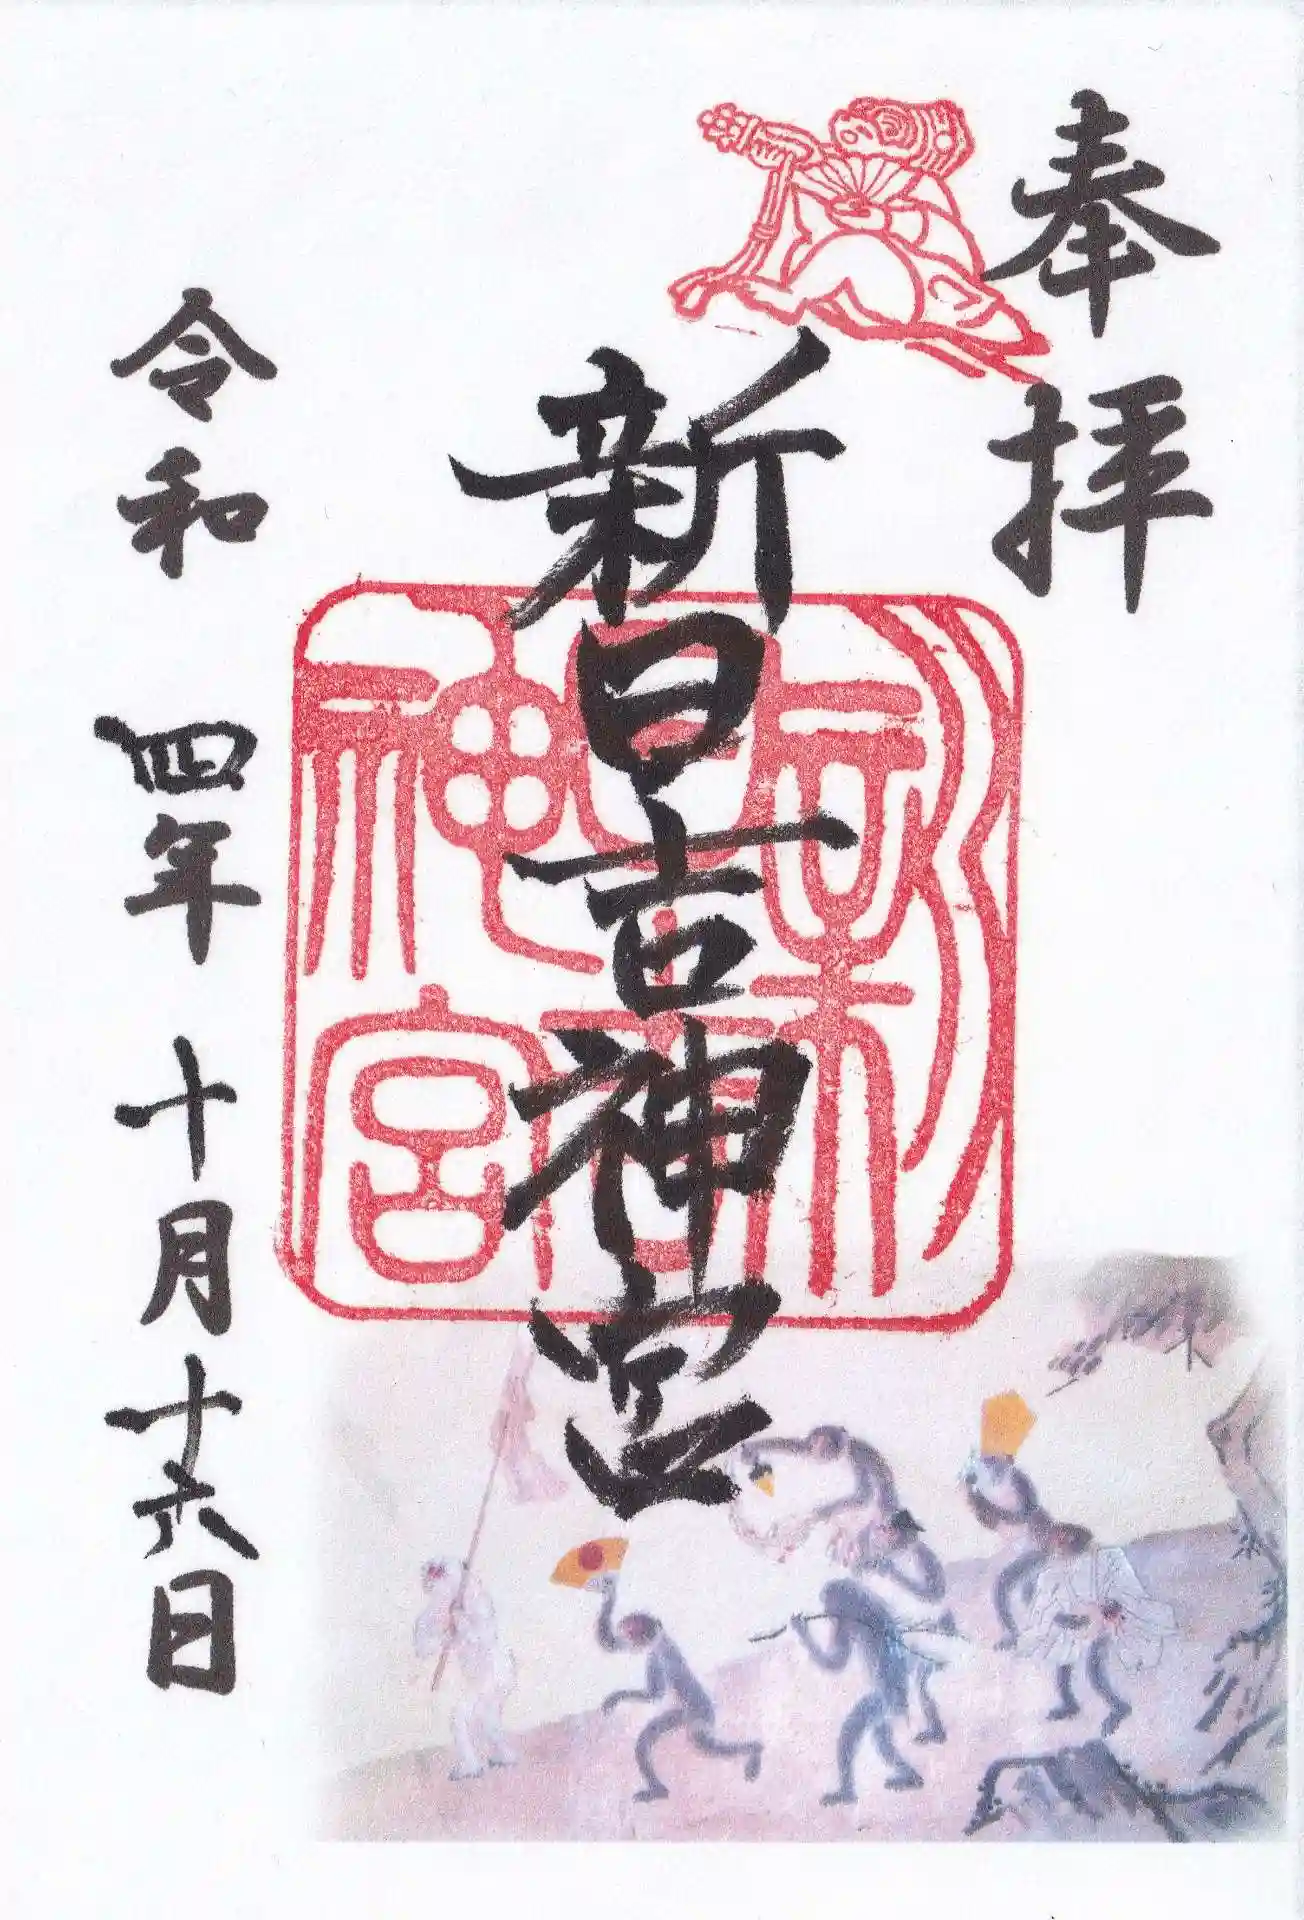 奉拝
新日吉神宮
令和四年十月十六日
新日吉神宮